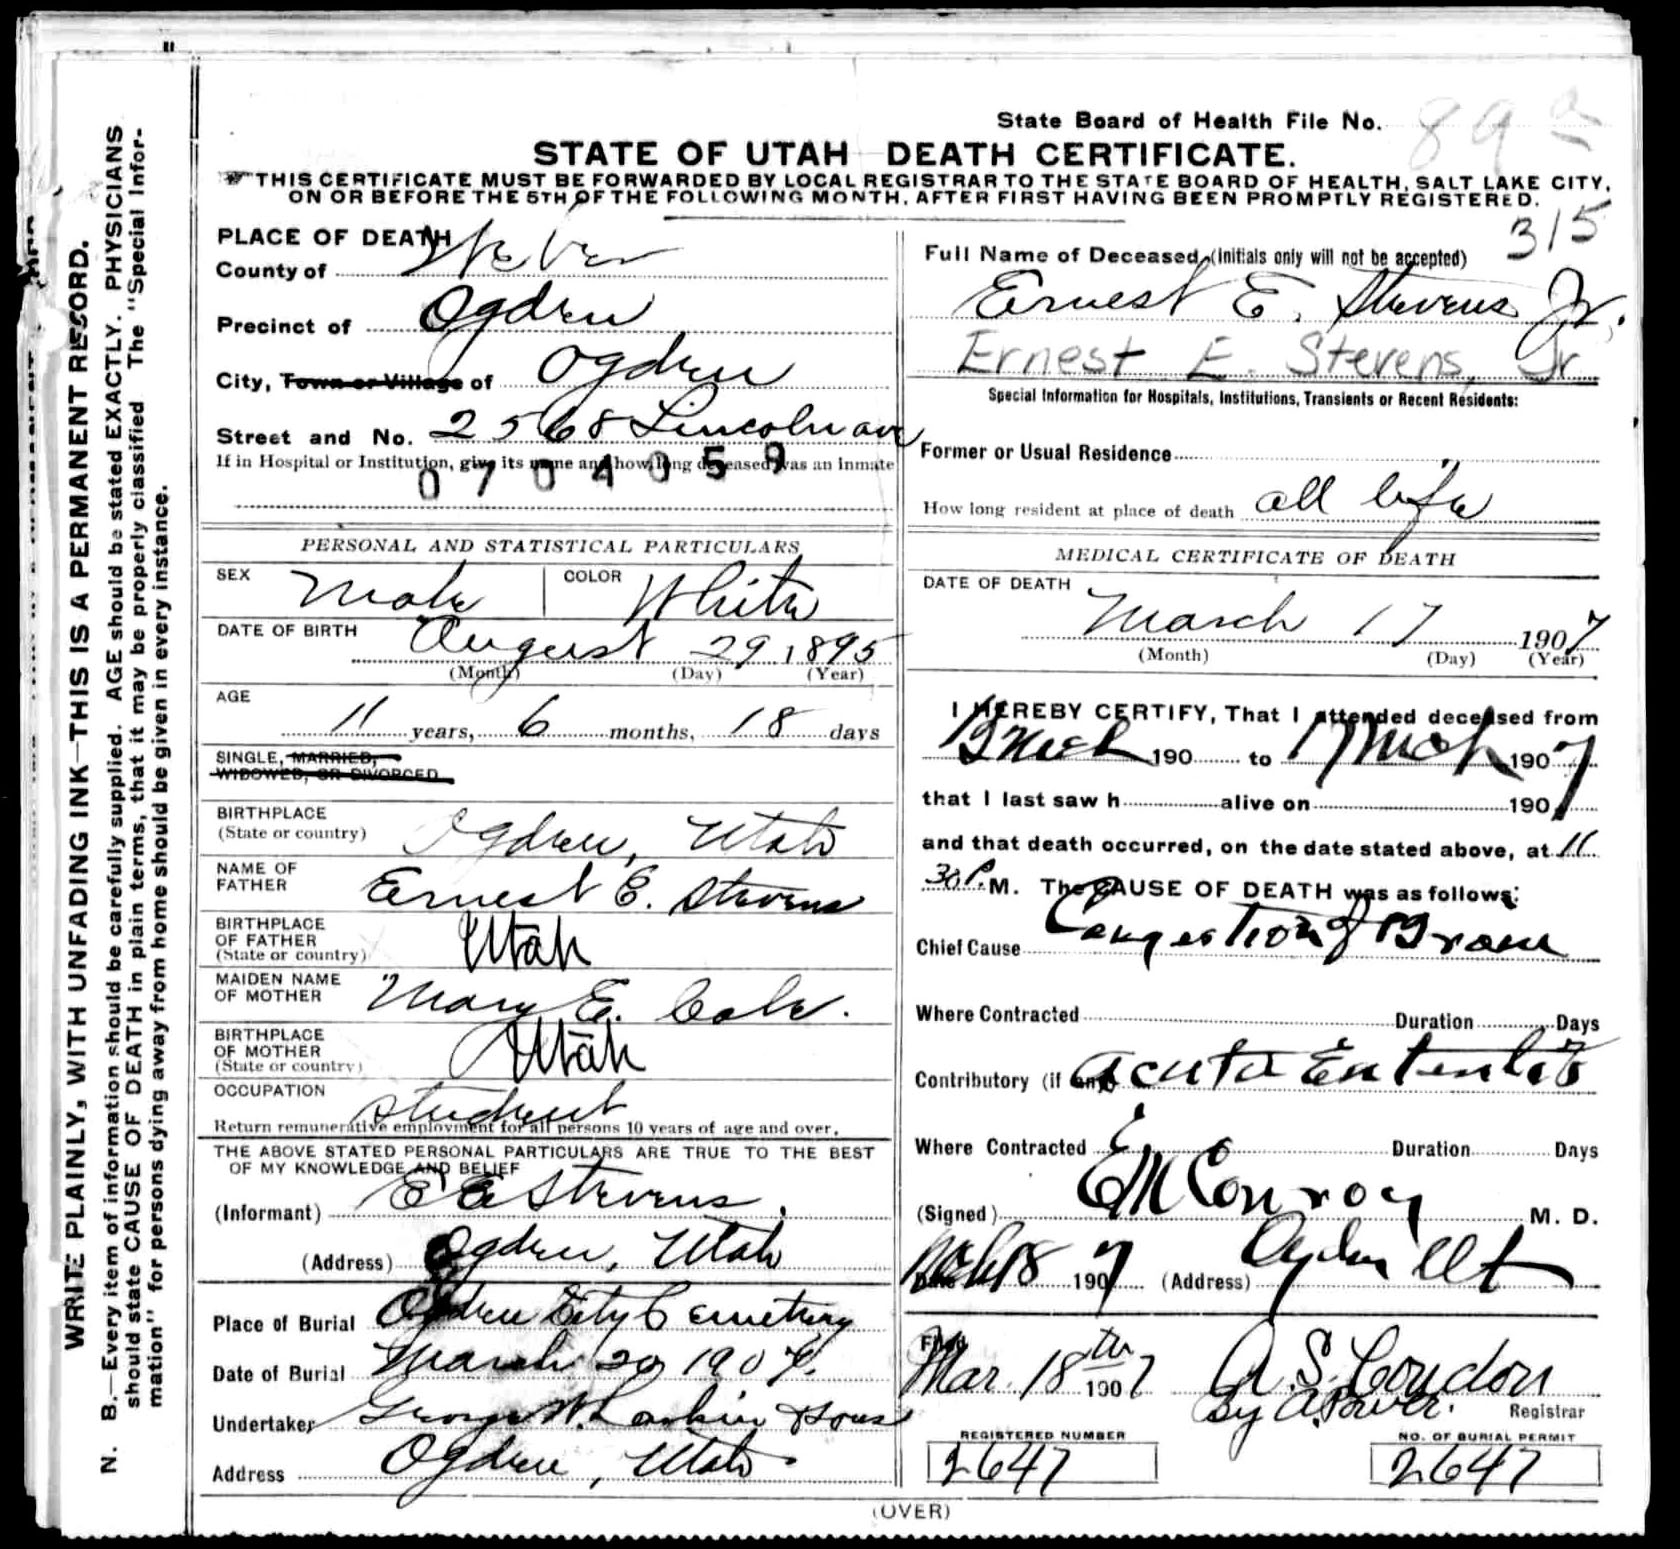 WRITE PLAINLY, WITH UNFADING INK—THIS IS A PERMANENT RECORD.
N. B.—Every item of information should be carefully supplied. AGE should be stated EXACTLY. PHYSICIANS
should state CAUSE OF DEATH in plain terms, that it may be properly classified The "Special Infor-
mation" for persons dying away from home should be given in every instance.
State Board of Health File No. 89
STATE OF UTAH DEATH CERTIFICATE.
THIS CERTIFICATE MUST BE FORWARDED BY LOCAL REGISTRAR TO THE STATE BOARD OF HEALTH, SALT LAKE CITY,
ON OR BEFORE THE 5TH OF THE FOLLOWING MONTH, AFTER FIRST HAVING BEEN PROMPTLY REGISTERED.
315
PLACE OF DEATH
County of Weber
Precinct of Ogden
City, Town or Village of Ogden
Street and No. 2568 Lincoln ave
If in Hospital or Institution, give its name and how long deceased was an Inmate
0704059
Full Name of Deceased (Initials only will not be accepted)
Ernest E. Stevens Jr.
Ernest E. Stevens, Jr
Special Information for Hospitals, Institutions, Transients or Recent Residents:
Former or Usual Residence
How long resident at place of death all life
PERSONAL AND STATISTICAL PARTICULARS
SEX Male COLOR White
DATE OF BIRTH August 29, 1895
(Month) (Day) (Year)
AGE
11 years, 6 months, 18 days
SINGLE, MARRIED,
WIDOWED, OR DIVORCED
BIRTHPLACE
(State or country) Ogden, Utah
NAME OF
FATHER Ernest E. Stevens
BIRTHPLACE
OF FATHER
(State or country) Utah
MAIDEN NAME
OF MOTHER Mary E. Cole.
BIRTHPLACE
OF MOTHER
(State or country) Utah
OCCUPATION student
Return remunerative employment for all persons 10 years of age and over.
THE ABOVE STATED PERSONAL PARTICULARS ARE TRUE TO THE BEST
OF MY KNOWLEDGE AND BELIEF
(Informant) E E Stevens,
(Address) Ogden, Utah
Place of Burial Ogden City Cemetery
Date of Burial March 20, 1907.
Undertaker George W. Larkin & Sons
Address Ogden, Utah
MEDICAL CERTIFICATE OF DEATH
DATE OF DEATH
March 17 1907
(Month) (Day) (Year)
I HEREBY CERTIFY, That I attended deceased from
Mch 190 to 17 Mch 1907
that I last saw h alive on 1907
and that death occurred, on the date stated above, at 11
30 P. M. The CAUSE OF DEATH was as follows:
Chief Cause Congestion of Brain
Where Contracted Duration Days
Contributory (if any) Acute
Where Contracted Duration Days
(Signed) E M Conroy M. D.
Date Mch 18 1907 (Address) Ogden Ut
Filed
Mar. 18th 1907 A. S. Condon
By A. Power. Registrar
REGISTERED NUMBER
2647
NO. OF BURIAL PERMIT
2647
(OVER)